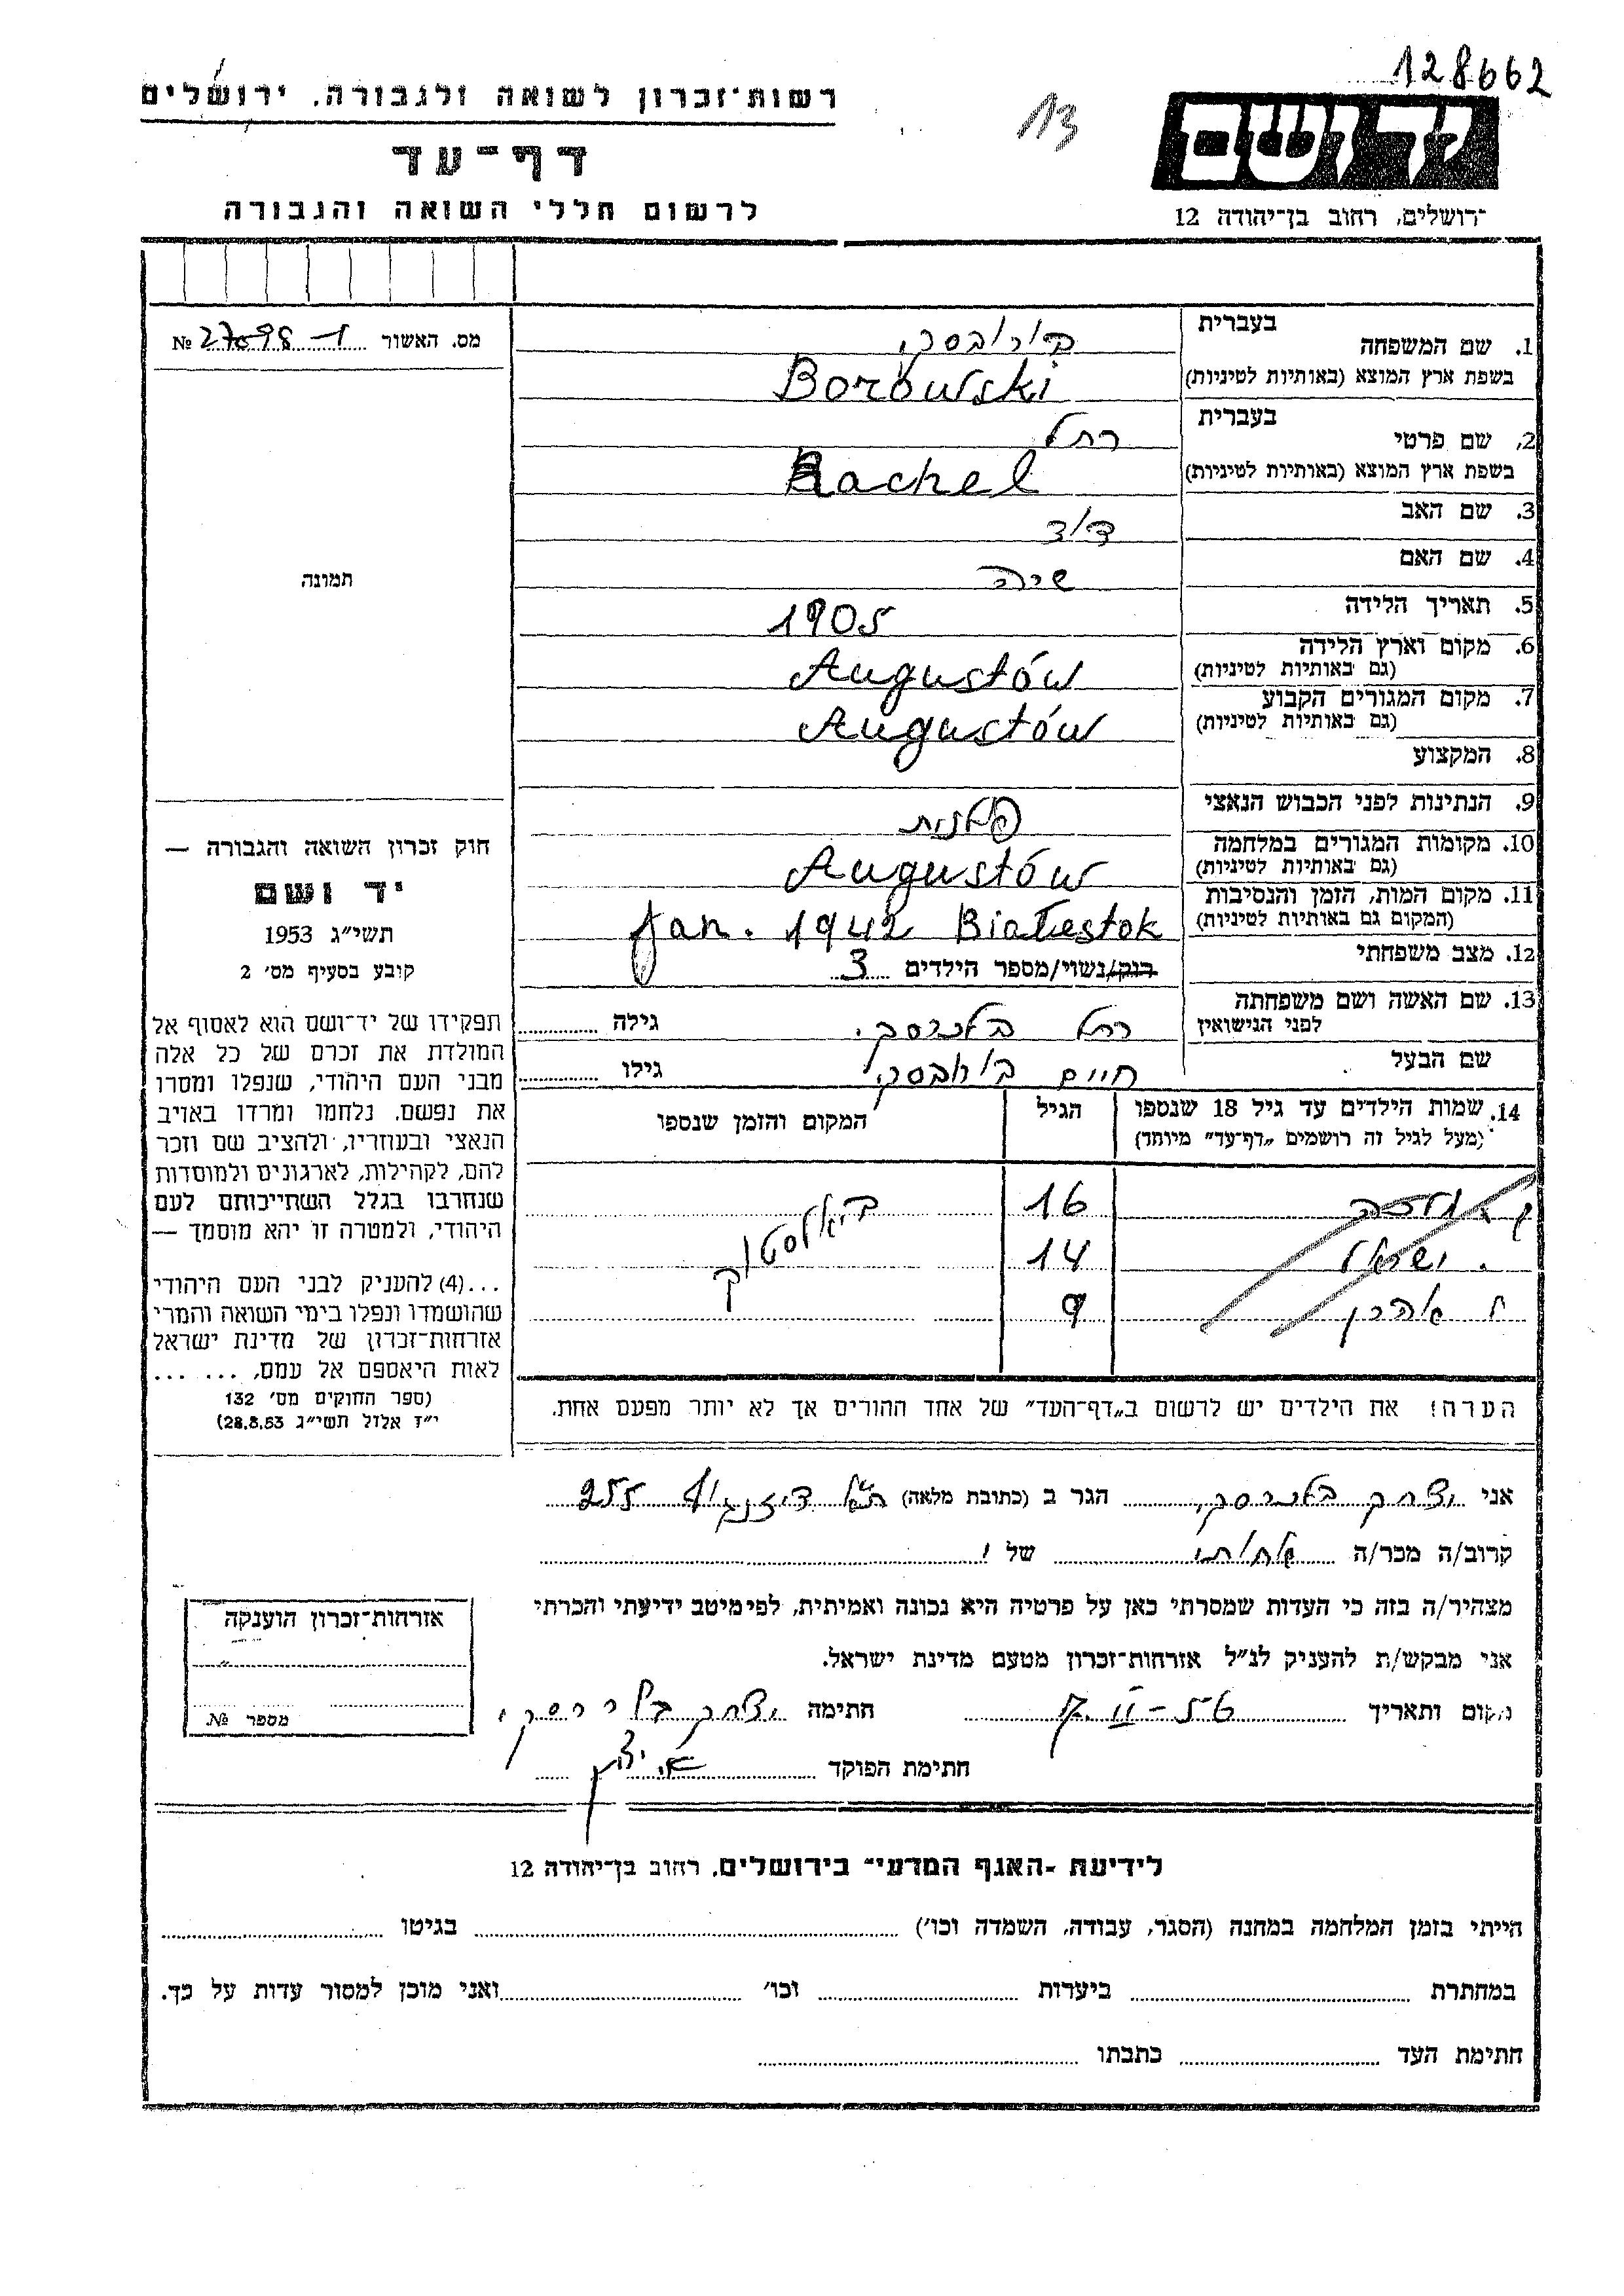 128662
רשות־זכרון לשואה ולגבורה, ירושלים
13
ידושם
דף־עד
לרשום חללי השואה והגבורה
ירושלים, רחוב בן־יהודה 12
מס. האשור № 27098-1
1. שם המשפחה
בעברית בורובסקי
בשפת ארץ המוצא (באותיות לטיניות) Borowski
2. שם פרטי
בעברית רחל
בשפת ארץ המוצא (באותיות לטיניות) Rachel
3. שם האב דוד
4. שם האם שירה
5. תאריך הלידה 1905
6. מקום וארץ הלידה
(גם באותיות לטיניות) Augustów
7. מקום המגורים הקבוע
(גם באותיות לטיניות) Augustów
8. המקצוע
9. הנתינות לפני הכבוש הנאצי פולנית
10. מקומות המגורים במלחמה
(גם באותיות לטיניות) Augustów
11. מקום המות, הזמן והנסיבות
(המקום גם באותיות לטיניות) Jan. 1942 Białestok
12. מצב משפחתי רוק/נשוי/מספר הילדים 3
13. שם האשה ושם משפחתה
לפני הנישואין רחל גילה
שם הבעל חיים בורובסקי גילו
14. שמות הילדים עד גיל 18 שנספו
(מעל לגיל זה רושמים „דף־עד" מיוחד)
הגיל
המקום והזמן שנספו
16 ביאלסטוק
ישראל 14
אהרן 9
הערה! את הילדים יש לרשום ב„דף־העד" של אחד ההורים אך לא יותר מפעם אחת.
תמונה
חוק זכרון השואה והגבורה —
יד ושם
תשי"ג 1953
קובע בסעיף מס' 2
תפקידו של יד־ושם הוא לאסוף אל
המולדת את זכרם של כל אלה
מבני העם היהודי, שנפלו ומסרו
את נפשם, נלחמו ומרדו באויב
הנאצי ובעוזריו, ולהציב שם וזכר
להם, לקהילות, לארגונים ולמוסדות
שנחרבו בגלל השתייכותם לעם
היהודי, ולמטרה זו יהא מוסמך —
...(4) להעניק לבני העם היהודי
שהושמדו ונפלו בימי השואה והמרי
אזרחות־זכרון של מדינת ישראל
לאות היאספם אל עמם, ... ...
(ספר החוקים מס' 132
י"ז אלול תשי"ג 28.8.53)
אני יצחק הגר ב (כתובת מלאה) ת"א דיזנגוף 255
קרוב/ה מכר/ה אחותי של
מצהיר/ה בזה כי העדות שמסרתי כאן על פרטיה היא נכונה ואמיתית, לפי מיטב ידיעתי והכרתי
אני מבקש/ת להעניק לנ"ל אזרחות־זכרון מטעם מדינת ישראל.
מקום ותאריך חתימה יצחק
חתימת הפוקד
אזרחות־זכרון הוענקה
מספר №
לידיעת ־האגף המדעי־ בירושלים, רחוב בן־יהודה 12
הייתי בזמן המלחמה במחנה (הסגר, עבודה, השמדה וכו') בגיטו
במחתרת ביערות וכו' ואני מוכן למסור עדות על כך.
חתימת העד כתבתו